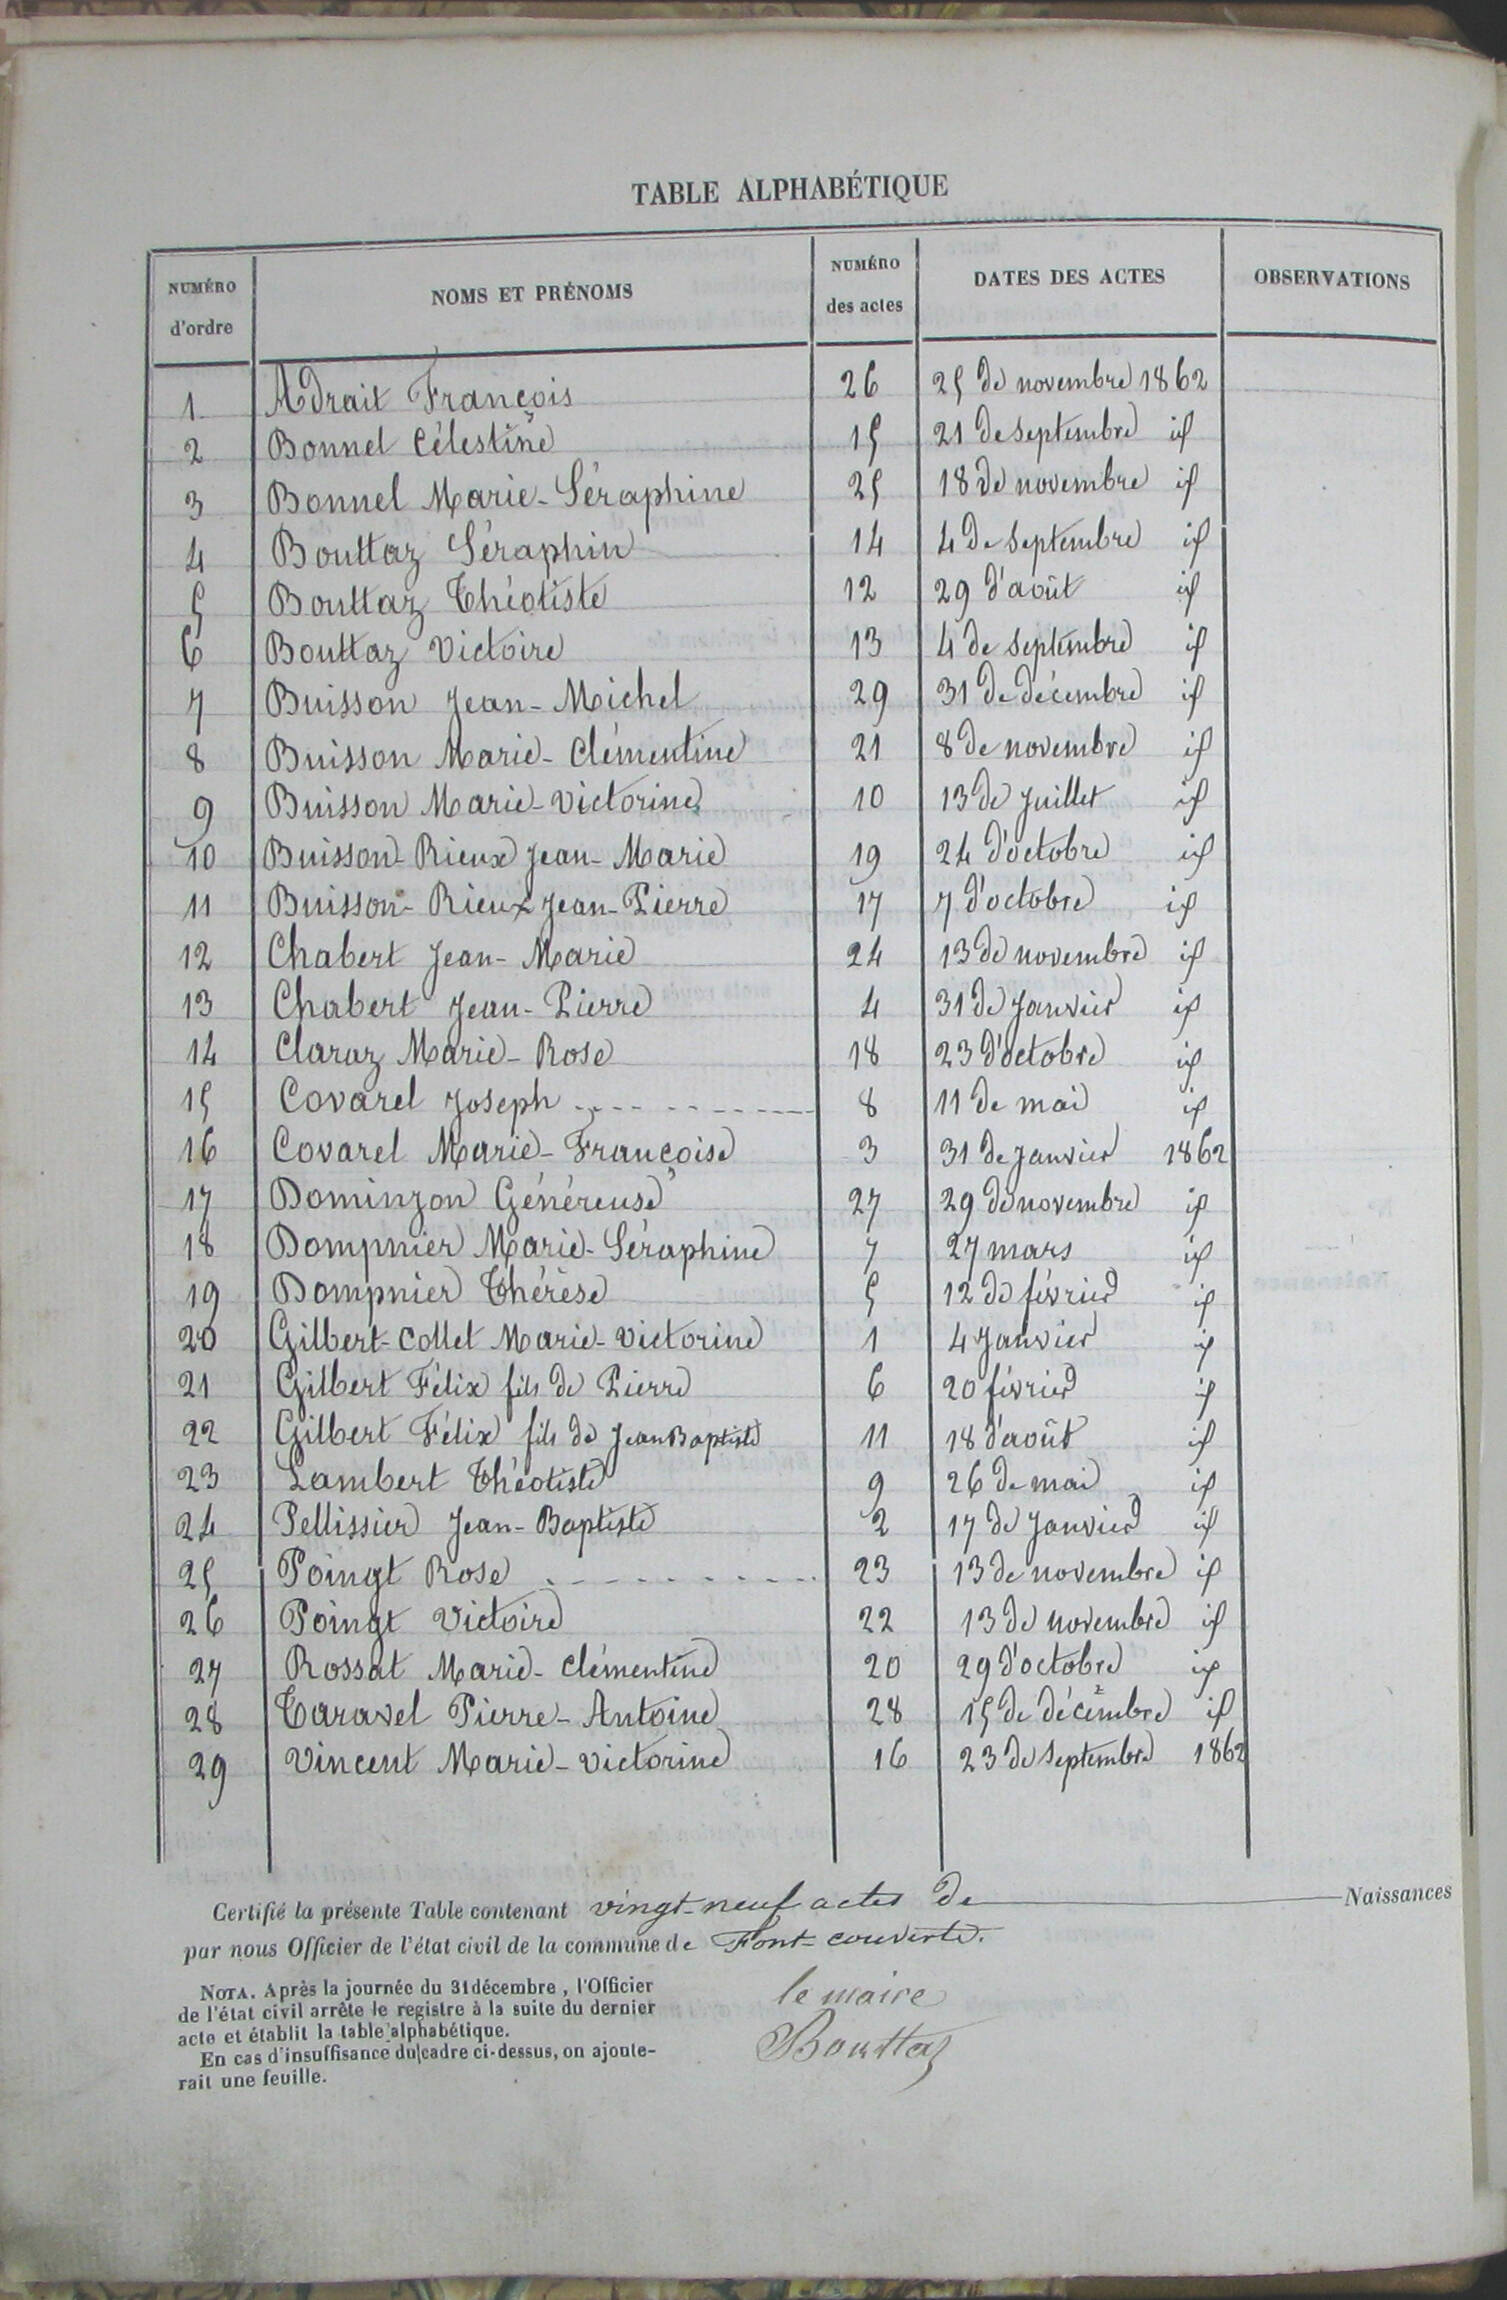 TABLE ALPHABÉTIQUE
NUMÉRO d'ordre NOMS ET PRÉNOMS NUMÉRO des actes DATES DES ACTES OBSERVATIONS
1 Adrait François 26 25 de novembre 1862
2 Bonnel Célestine 15 21 de septembre id
3 Bonnel Marie-Séraphine 25 18 de novembre id
4 Bouttaz Séraphin 14 4 de septembre id
5 Bouttaz Théotiste 12 29 d'août id
6 Bouttaz Victoire 13 4 de septembre id
7 Buisson Jean-Michel 29 31 de décembre id
8 Buisson Marie-Clémentine 21 8 de novembre id
9 Buisson Marie-Victorine 10 13 de Juillet id
10 Buisson-Rieux Jean-Marie 19 24 d'octobre id
11 Buisson-Rieux Jean-Pierre 17 7 d'octobre id
12 Chabert Jean-Marie 24 13 de novembre id
13 Chabert Jean-Pierre 4 31 de Janvier id
14 Claraz Marie-Rose 18 23 d'octobre id
15 Covarel Joseph 8 11 de mai id
16 Covarel Marie-Françoise 3 31 de Janvier 1862
17 Dominzon Généreuse 27 29 de novembre id
18 Dompnier Marie-Séraphine 7 27 mars id
19 Dompnier Thérèse 5 12 de février id
20 Gilbert-Collet Marie-Victorine 1 4 Janvier id
21 Gilbert Félix fils de Pierre 6 20 février id
22 Gilbert Félix fils de Jean Baptiste 11 18 d'août id
23 Lambert Théotiste 9 26 de mai id
24 Pellissier Jean-Baptiste 2 17 de Janvier id
25 Poingt Rose 23 13 de novembre id
26 Poingt Victoire 22 13 de novembre id
27 Rossat Marie-Clémentine 20 29 d'octobre id
28 Taravel Pierre-Antoine 28 15 de décembre id
29 Vincent Marie-Victorine 16 23 de septembre 1862
Certifié la présente Table contenant vingt-neuf actes de Naissances
par nous Officier de l'état civil de la commune de Font-couverte.
NOTA. Après la journée du 31 décembre, l'Officier
de l'état civil arrête le registre à la suite du dernier
acte et établit la table alphabétique.
En cas d'insuffisance du cadre ci-dessus, on ajoute-
rait une feuille.
le maire
Bouttaz